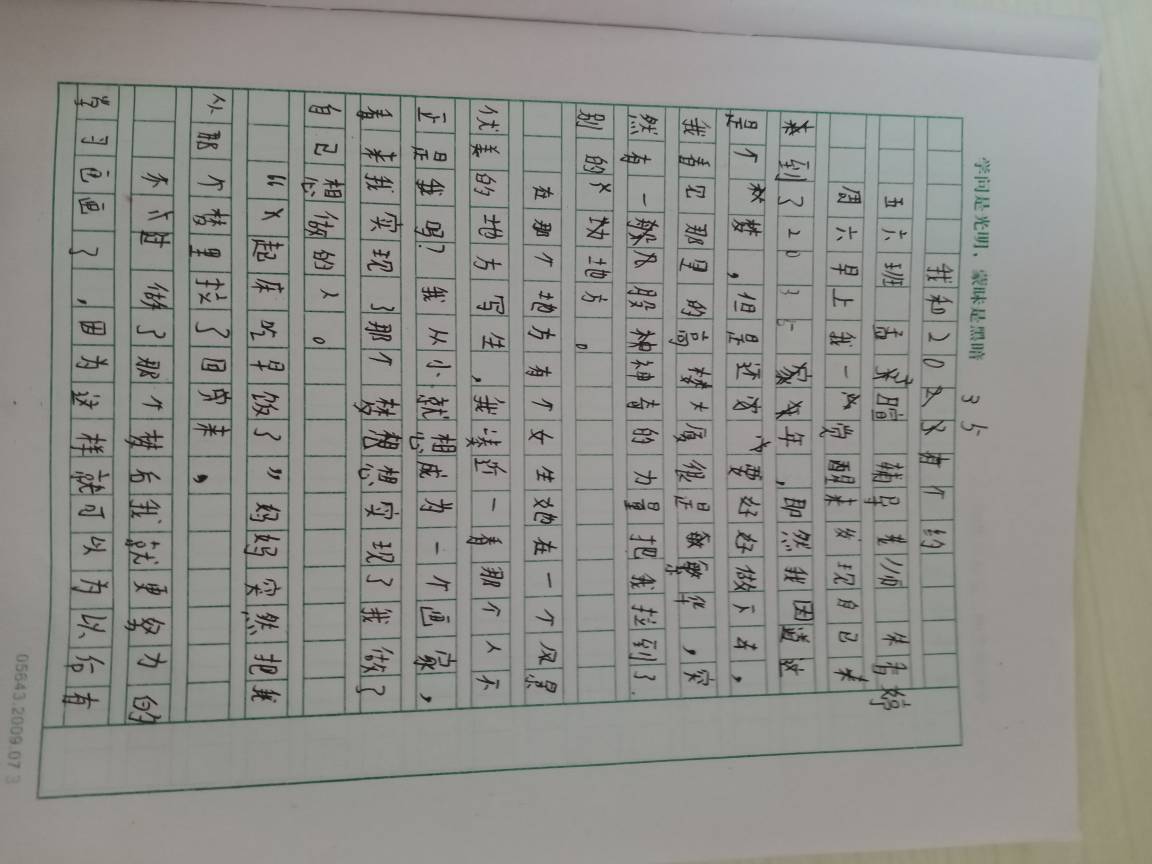 学问是光明，蒙昧是黑暗
我和2035有个约
五六班 孟 暄 辅导老师 朱春婷
周六早上我一觉醒来发现自己来
来到了2035 年，即然我因道这
是个梦，但是还没 要好好做下去，
我看它那里的高楼大厦很是繁华，突
然有一股神奇的力量把我拉到了
别的 地方。
在那个地方有个女生她在一个风景
优美的地方写生，我凑近一看那个人不
正是我吗？我从小就想成为一个画家，
看来我实现了那个梦想实现了我做了
自己想做的人。
“ 起床吃早饭了”妈妈突然把我
从那个梦里拉了回来，
不过做了那个梦后我就更努力的
学习画画了，因为这样就可以为以后有
05643.2009.07.3